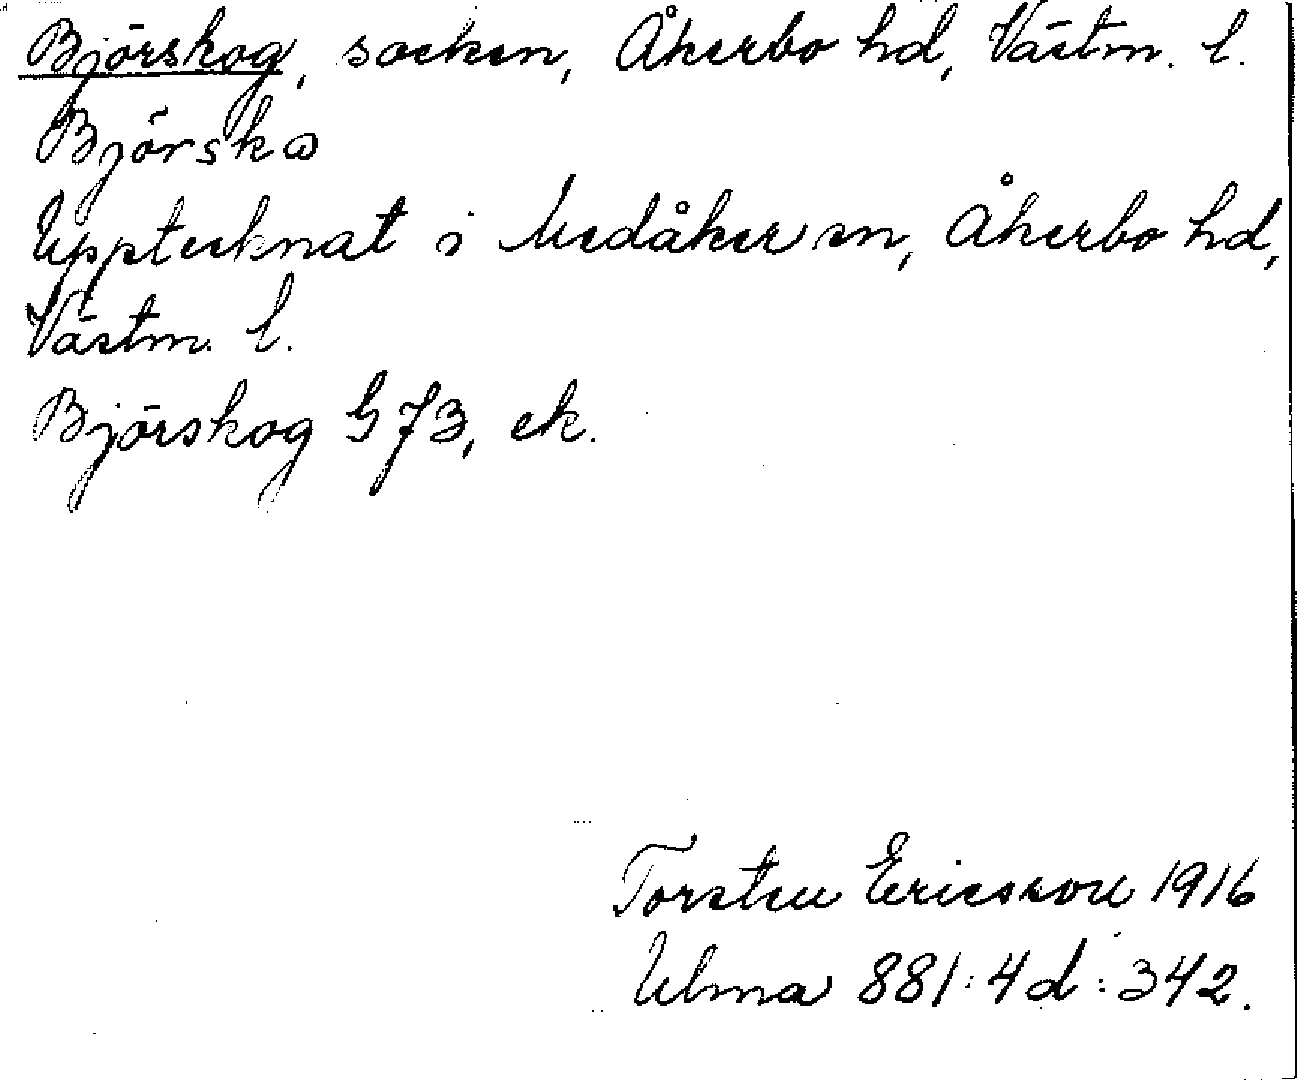 Björskog, socken, Åkerbo hd, Västm. l.
Björskω
Upptecknat i Medåker sn, Åkerbo hd,
Västm. l.
Björskog G 73, ek.
Torsten Ericsson 1916
Ulma 881:4d:342.